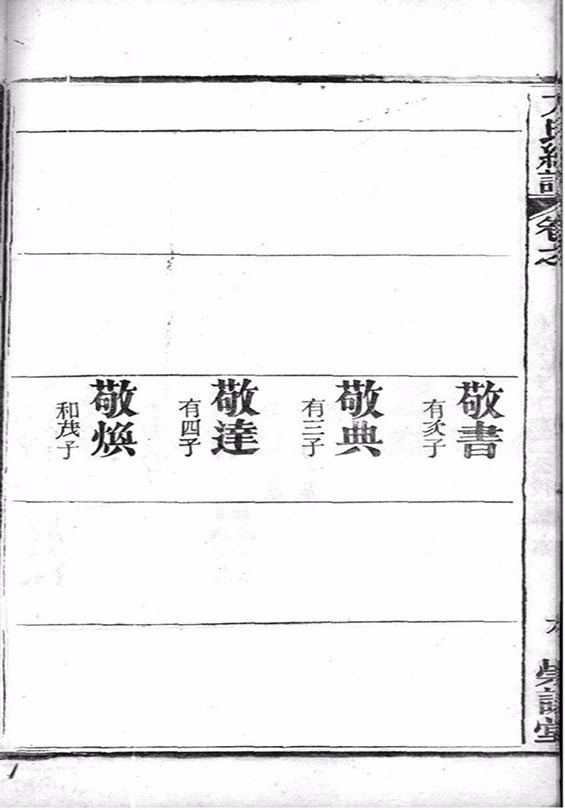 氏
卷之
堂
敬書
有亥子
敬典
有三子
敬達
有四子
敬煥
和茂子